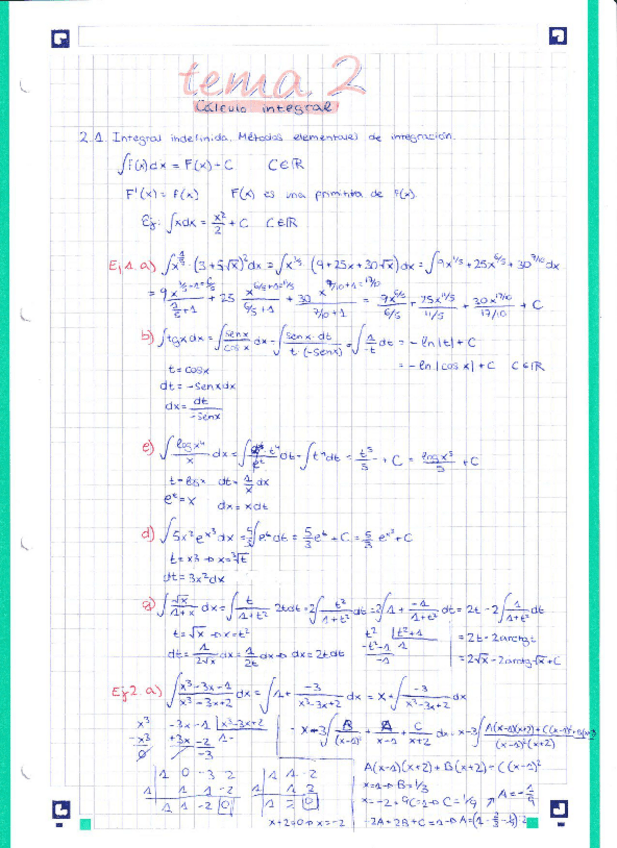 tema 2
Cálculo integral
2.1. Integral indefinida. Métodos elementales de integración.
∫f(x)dx = F(x) + C C∈ℝ
F'(x) = f(x) F(x) es una primitiva de f(x).
Ej: ∫xdx = x²/2 + C C∈ℝ
Ej1. a) ∫x^(1/5) · (3+5√x)² dx = ∫x^(1/5) (9+25x+30√x) dx = ∫9x^(1/5) + 25x^(6/5) + 30^(7/10) dx
= 9x^(1/5+1=6/5)/(1/5+1) + 25 x^(6/5+1=11/5)/(6/5+1) + 30 x^(7/10+1=17/10)/(7/10+1) = 9x^(6/5)/(6/5) + 25x^(11/5)/(11/5) + 30x^(17/10)/(17/10) + C
b) ∫tgxdx = ∫senx/cosx dx = ∫senx·dt/t·(-senx) = ∫1/-t dt = -ln|t| + C
t = cosx = -ln|cosx| + C C∈ℝ
dt = -senxdx
dx = dt/-senx
t = logx dt = 1/x dx
e^t = x dx = xdt
d) ∫5x²e^(x³)dx = 5/3∫e^t dt = 5/3 e^t + C = 5/3 e^(x³) + C
t = x³ → x = ³√t
dt = 3x²dx
∫√x/(1+x) dx = ∫t/(1+t²) 2tdt = 2∫t²/(1+t²) dt = 2∫1 + -1/(1+t²) dt = 2t - 2∫1/(1+t²) dt
t = √x → x = t² t² |t²+1 = 2t - 2arctgt
-t²-1 1
dt = 1/(2√x) dx = 1/2t dx → dx = 2tdt -1 = 2√x - 2arctg√x + C
Ej2. a) ∫(x³-3x-1)/(x³-3x+2) dx = ∫1 + -3/(x³-3x+2) dx = x + ∫-3/(x³-3x+2) dx
x³ -3x-1 |x³-3x+2
-x³ +3x-2 1
0 -3
= x-3∫B/(x-1)² + A/(x-1) + C/(x+2) dx
1 0 -3 2
1 1 1 -2
1 1 -2 0
1 1 -2
1 1 2
1 2 0
x+2=0 → x=-2
A(x-1)(x+2) + B(x+2) + C(x-1)²
x=1 → B=1/3
x=-2 → 9C=1 → C=1/9 A=-1/9